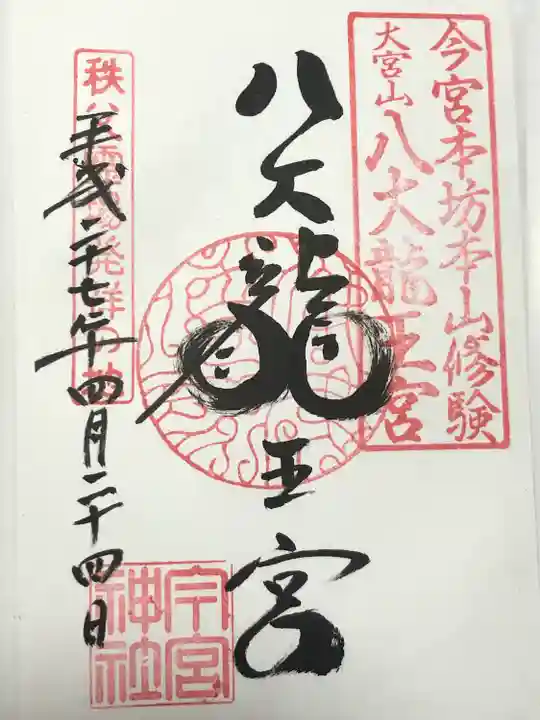 今宮本坊本山修験
大宮山八大龍王宮
八大龍王宮
秩父霊場発祥の地
平成二十七年四月二十四日
今宮
神社